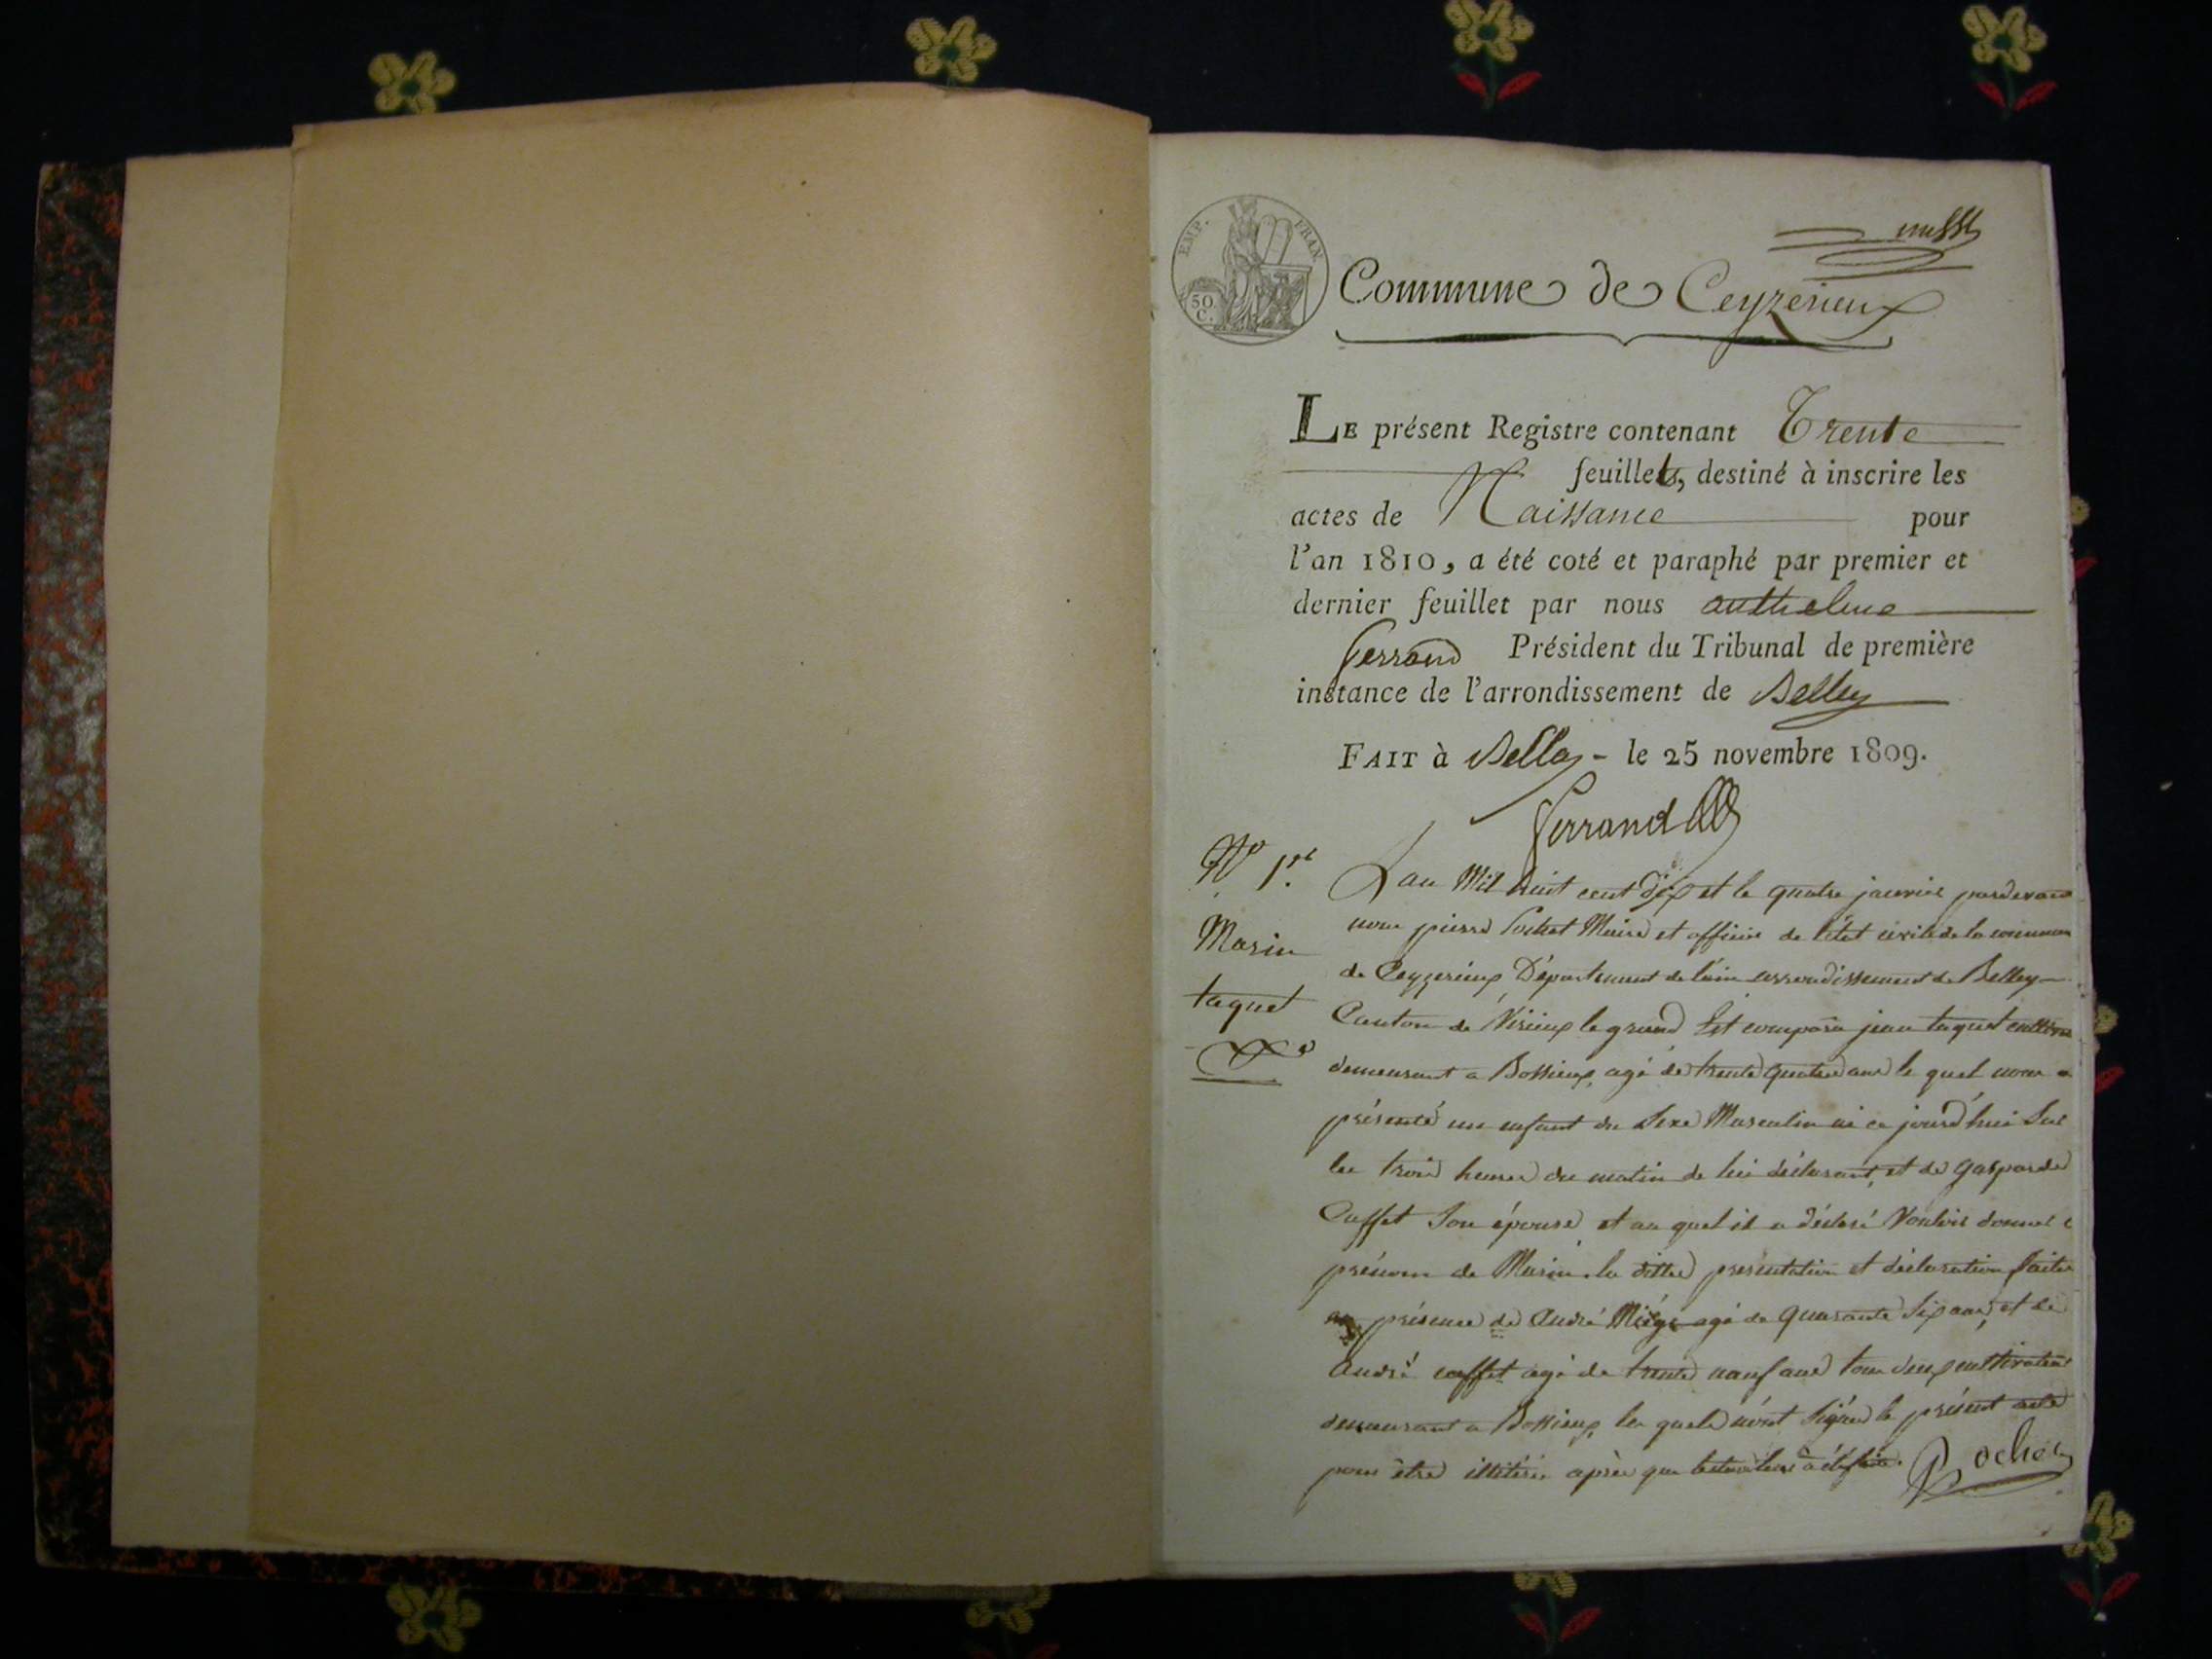 EMP. FRAN.
50 C.
Commune de Ceyzerieux
LE présent Registre contenant Trente
feuillets, destiné à inscrire les
actes de Naissance pour
l'an 1810, a été coté et paraphé par premier et
dernier feuillet par nous anthelme
ferrand Président du Tribunal de première
instance de l'arrondissement de Belley
FAIT à Belley - le 25 novembre 1809.
ferrand
N° 1er
Marin
taquet
Lan Mil huit cent dix et le quatre janvier pardevant
nous pierre Pochet Maire et officier de létat civile de la commune
de Ceyzerieux Département de lain arrondissement de Belley
Canton de Virieux le grand Est comparu jean taquet cultiva
demeurant a Bossieux agé de trente quatre ans le quel nous a
présenté un enfant du Sexe Masculin né ce jourd'hui Sur
les trois heures du matin de lui déclarant, et de gasparde
Cuffet Son épouse, et au quel il a déclaré Vouloir donner
prénom de Marin. la ditte presentation et déclaration faite
en présence de André Miége agé de quarante Six ans, et de
André cuffet agé de trente neuf ans tous deux cultivateurs
demeurant a Bossieux les quels n'ont Signés le présent acte
pour être illitérés après que lecture leur a été faite. Pochet